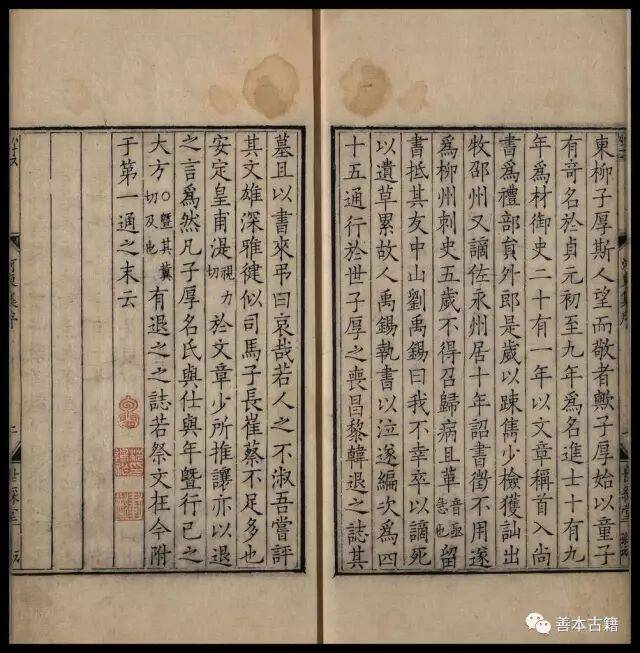 東柳子厚斯人望而敬者歟子厚始以童子
有竒名於貞元初至九年爲名進士十有九
年爲材御史二十有一年以文章稱首入尚
書爲禮部員外郎是歲以踈雋少檢獲訕出
牧邵州又謫佐永州居十年詔書徵不用遂
爲柳州刺史五歲不得召歸病且革音亟急也留
書抵其友中山劉禹錫曰我不幸卒以謫死
以遺草累故人禹錫執書以泣遂編次爲四
十五通行於世子厚之喪昌黎韓退之誌其
墓且以書來弔曰哀哉若人之不淑吾嘗評
其文雄深雅健似司馬子長崔蔡不足多也
安定皇甫湜視力切於文章少所推讓亦以退
之言爲然凡子厚名氏與仕與年暨行已之
大方○暨其冀切及也有退之之誌若祭文在今附
于第一通之末云
河東集序
二
世綵堂
善本古籍